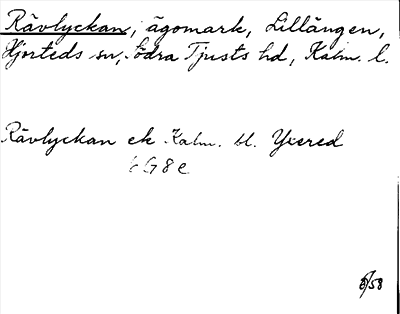 Rävlyckan, ägomark, Lillängen,
Hjorteds sn, Södra Tjusts hd, Kalm. l.
Rävlyckan ek Kalm. bl. Yxered
6G8e
6/58